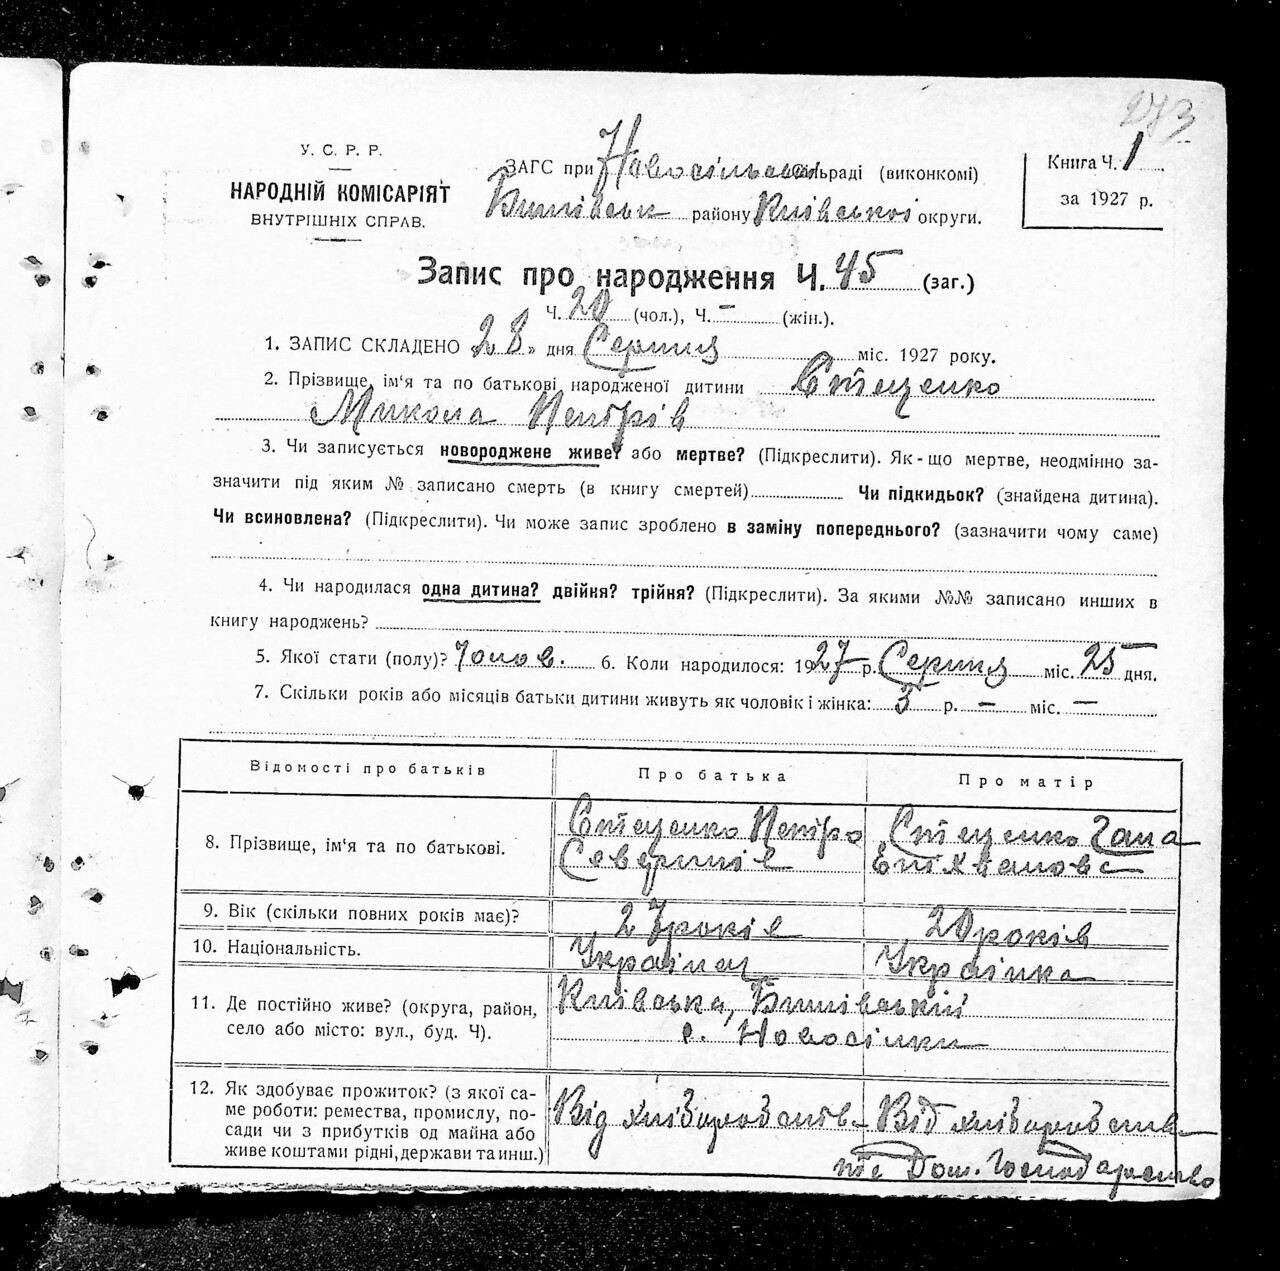 273
У. С. Р. Р.
НАРОДНІЙ КОМІСАРІЯТ
ВНУТРІШНІХ СПРАВ.
ЗАГС при Новосільській сільраді (виконкомі)
Бишівськ району Київської округи.
Книга Ч. 1
за 1927 р.
Запис про народження Ч. 45 (заг.)
Ч. 20 (чол.), Ч. – (жін.).
1. ЗАПИС СКЛАДЕНО „28» дня Серпня міс. 1927 року.
2. Прізвище, ім‘я та по батькові народженої дитини Стеценко
Микола Петрів
3. Чи записується новороджене живе? або мертве? (Підкреслити). Як-що мертве, неодмінно за-
значити під яким № записано смерть (в книгу смертей) Чи підкидьок? (знайдена дитина).
Чи всиновлена? (Підкреслити). Чи може запис зроблено в заміну попереднього? (зазначити чому саме)
4. Чи народилася одна дитина? двійня? трійня? (Підкреслити). За якими №№ записано инших в
книгу народжень?
5. Якої стати (полу)? Чолов. 6. Коли народилося: 1927 р. Серпня міс. 25 дня.
7. Скільки років або місяців батьки дитини живуть як чоловік і жінка: 5 р. – міс. –
Відомості про батьків Про батька Про матір
8. Прізвище, ім‘я та по батькові. Стеценко Петро Северинів Стеценко Гана
9. Вік (скільки повних років має)? 27 років 20 років
10. Національність. Українець Українка
11. Де постійно живе? (округа, район, Київська, Бишівський
село або місто: вул., буд. Ч). с. Новосілки
12. Як здобуває прожиток? (з якої са-
ме роботи: ремества, промислу, по-
сади чи з прибутків од майна або
живе коштами рідні, держави та инш.)
Від хліборобств Від хліборобства
та Дом. Господарство